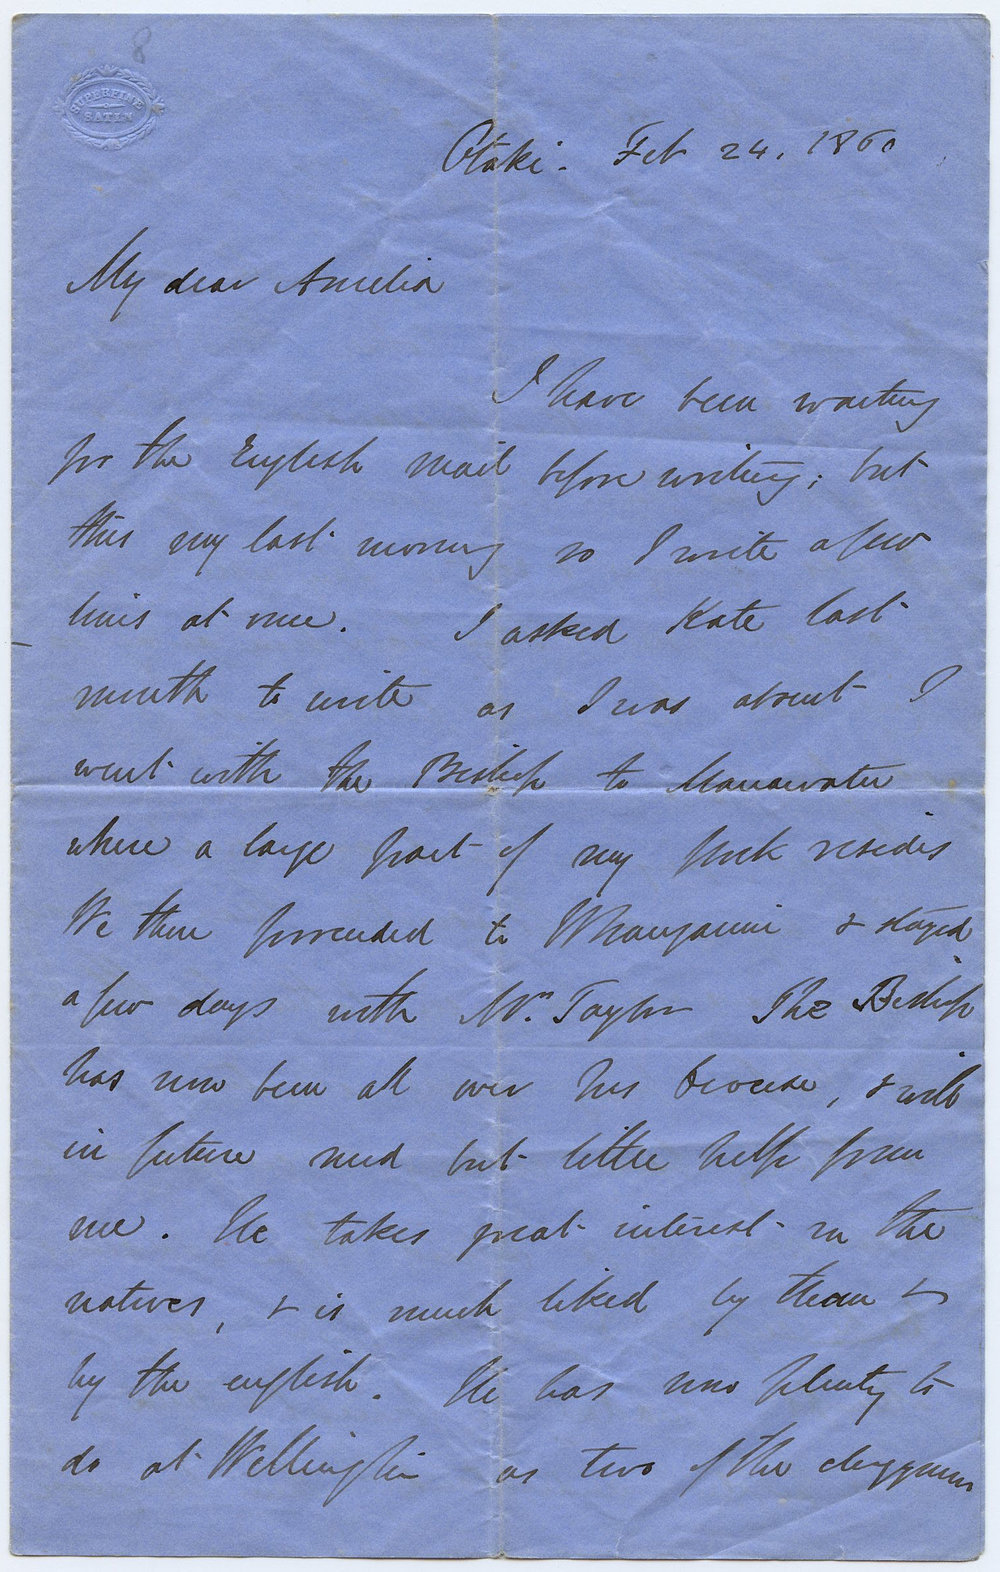 8
SUPERFINE
SATIN
Otaki. Feb 24. 1860
My dear Amelia
I have been waiting
for the English mail before writing; but
this my last morning so I write a few
lines at once. I asked Kate last
month to write as I was absent I
went with the Bishop to Manawatu
where a large part of my flock resides
We then proceeded to Whanganui & stayed
a few days with Mr. Taylor The Bishop
has now been all over his Diocese, & will
in future need but little help from
me. He takes great interest in the
natives, & is much liked by them &
by the english. He has now plenty to
do at Wellington as two of the clergymen